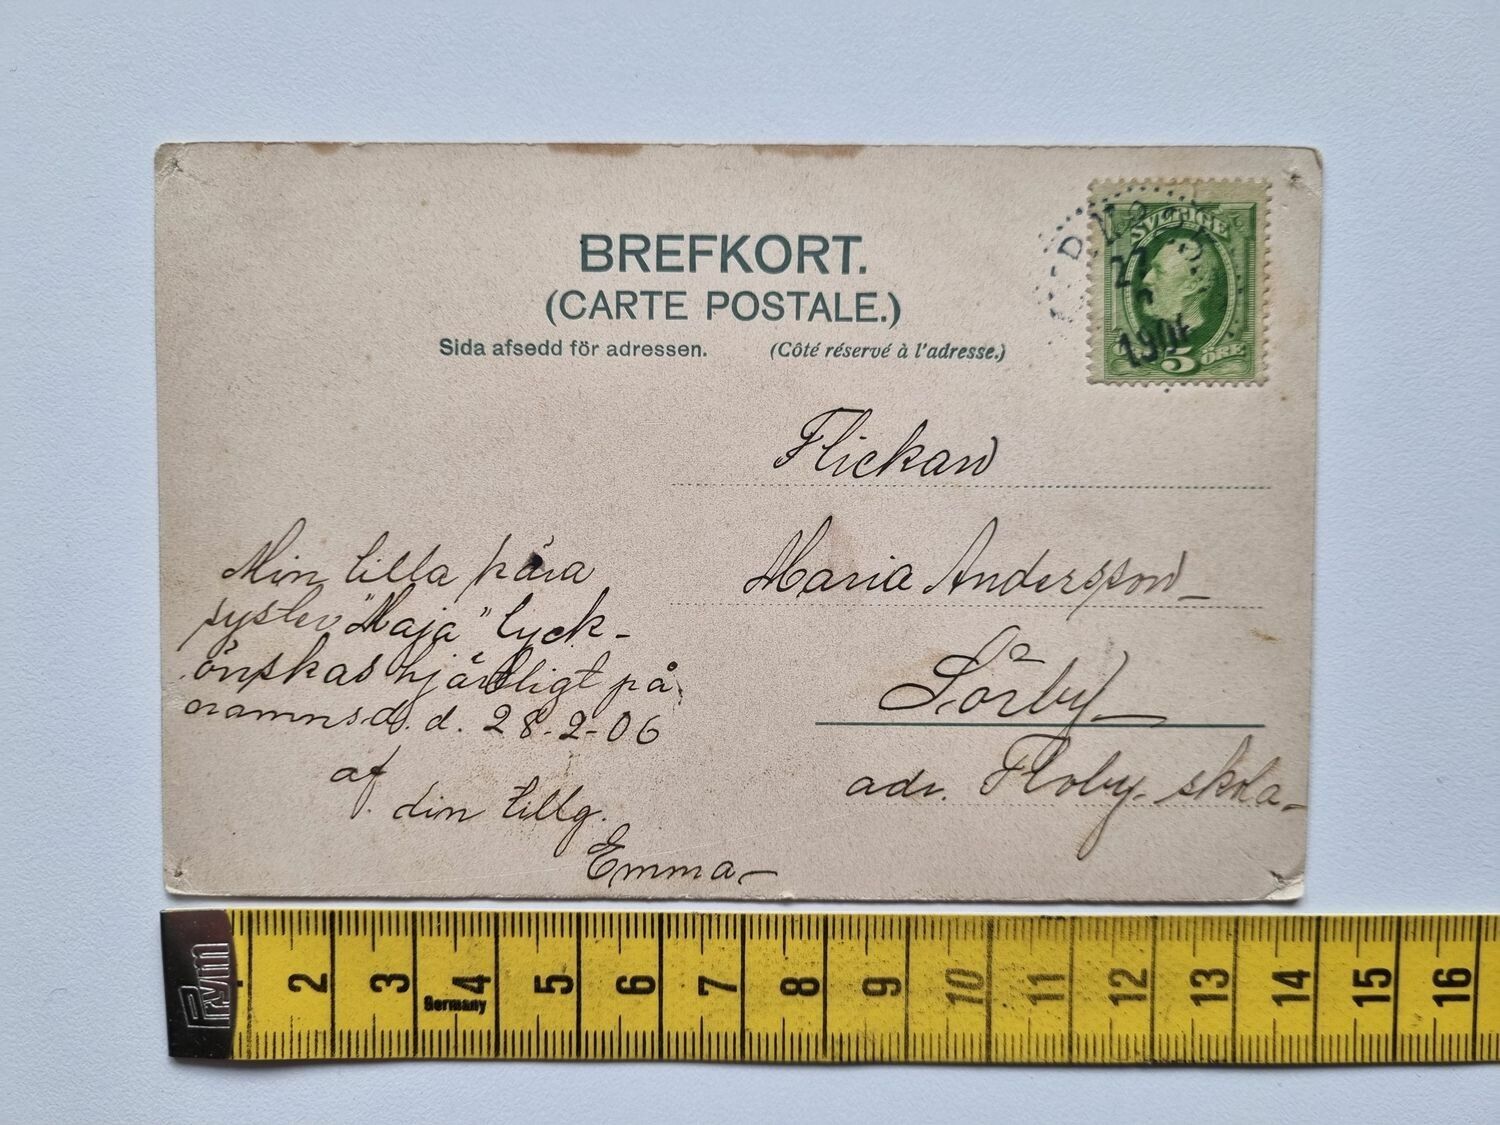 BREFKORT.
(CARTE POSTALE.)
Sida afsedd för adressen. (Côté réservé à l'adresse.)
SVERIGE
27
1904
5 ÖRE
Flickan
Maria Andersson
Sörby
adr. Floby skola
Min lilla kära
syster "Maja" lyck-
önskas hjärtligt på
namnsd. d. 28-2-06
af
din tillg.
Emma
Prym
2 3 4 5 6 7 8 9 10 11 12 13 14 15 16
Germany